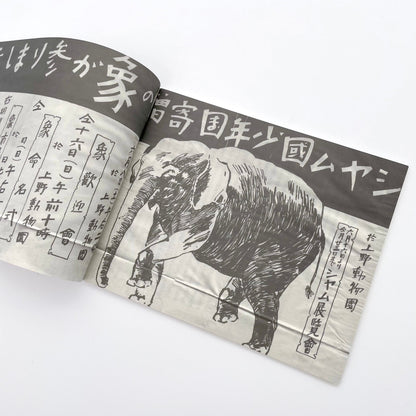 シヤム國少年団寄贈の
象が参りました
於上野動物園
シャム展覧會
象歡迎會
於上野動物園
仝十六日(日)午前十時
象命名式
於上野動物園